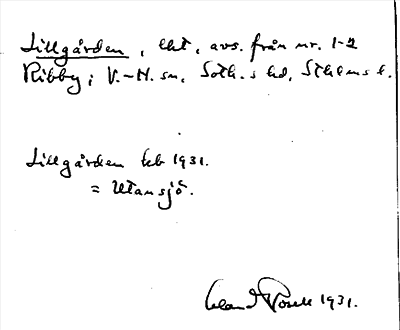 Lillgården, lht, avs. från nr. 1-2
Ribby, V.-H. sn, Soth.s hd, Sthlms l.
Lillgården leb 1931.
= Utansjö.
1931.